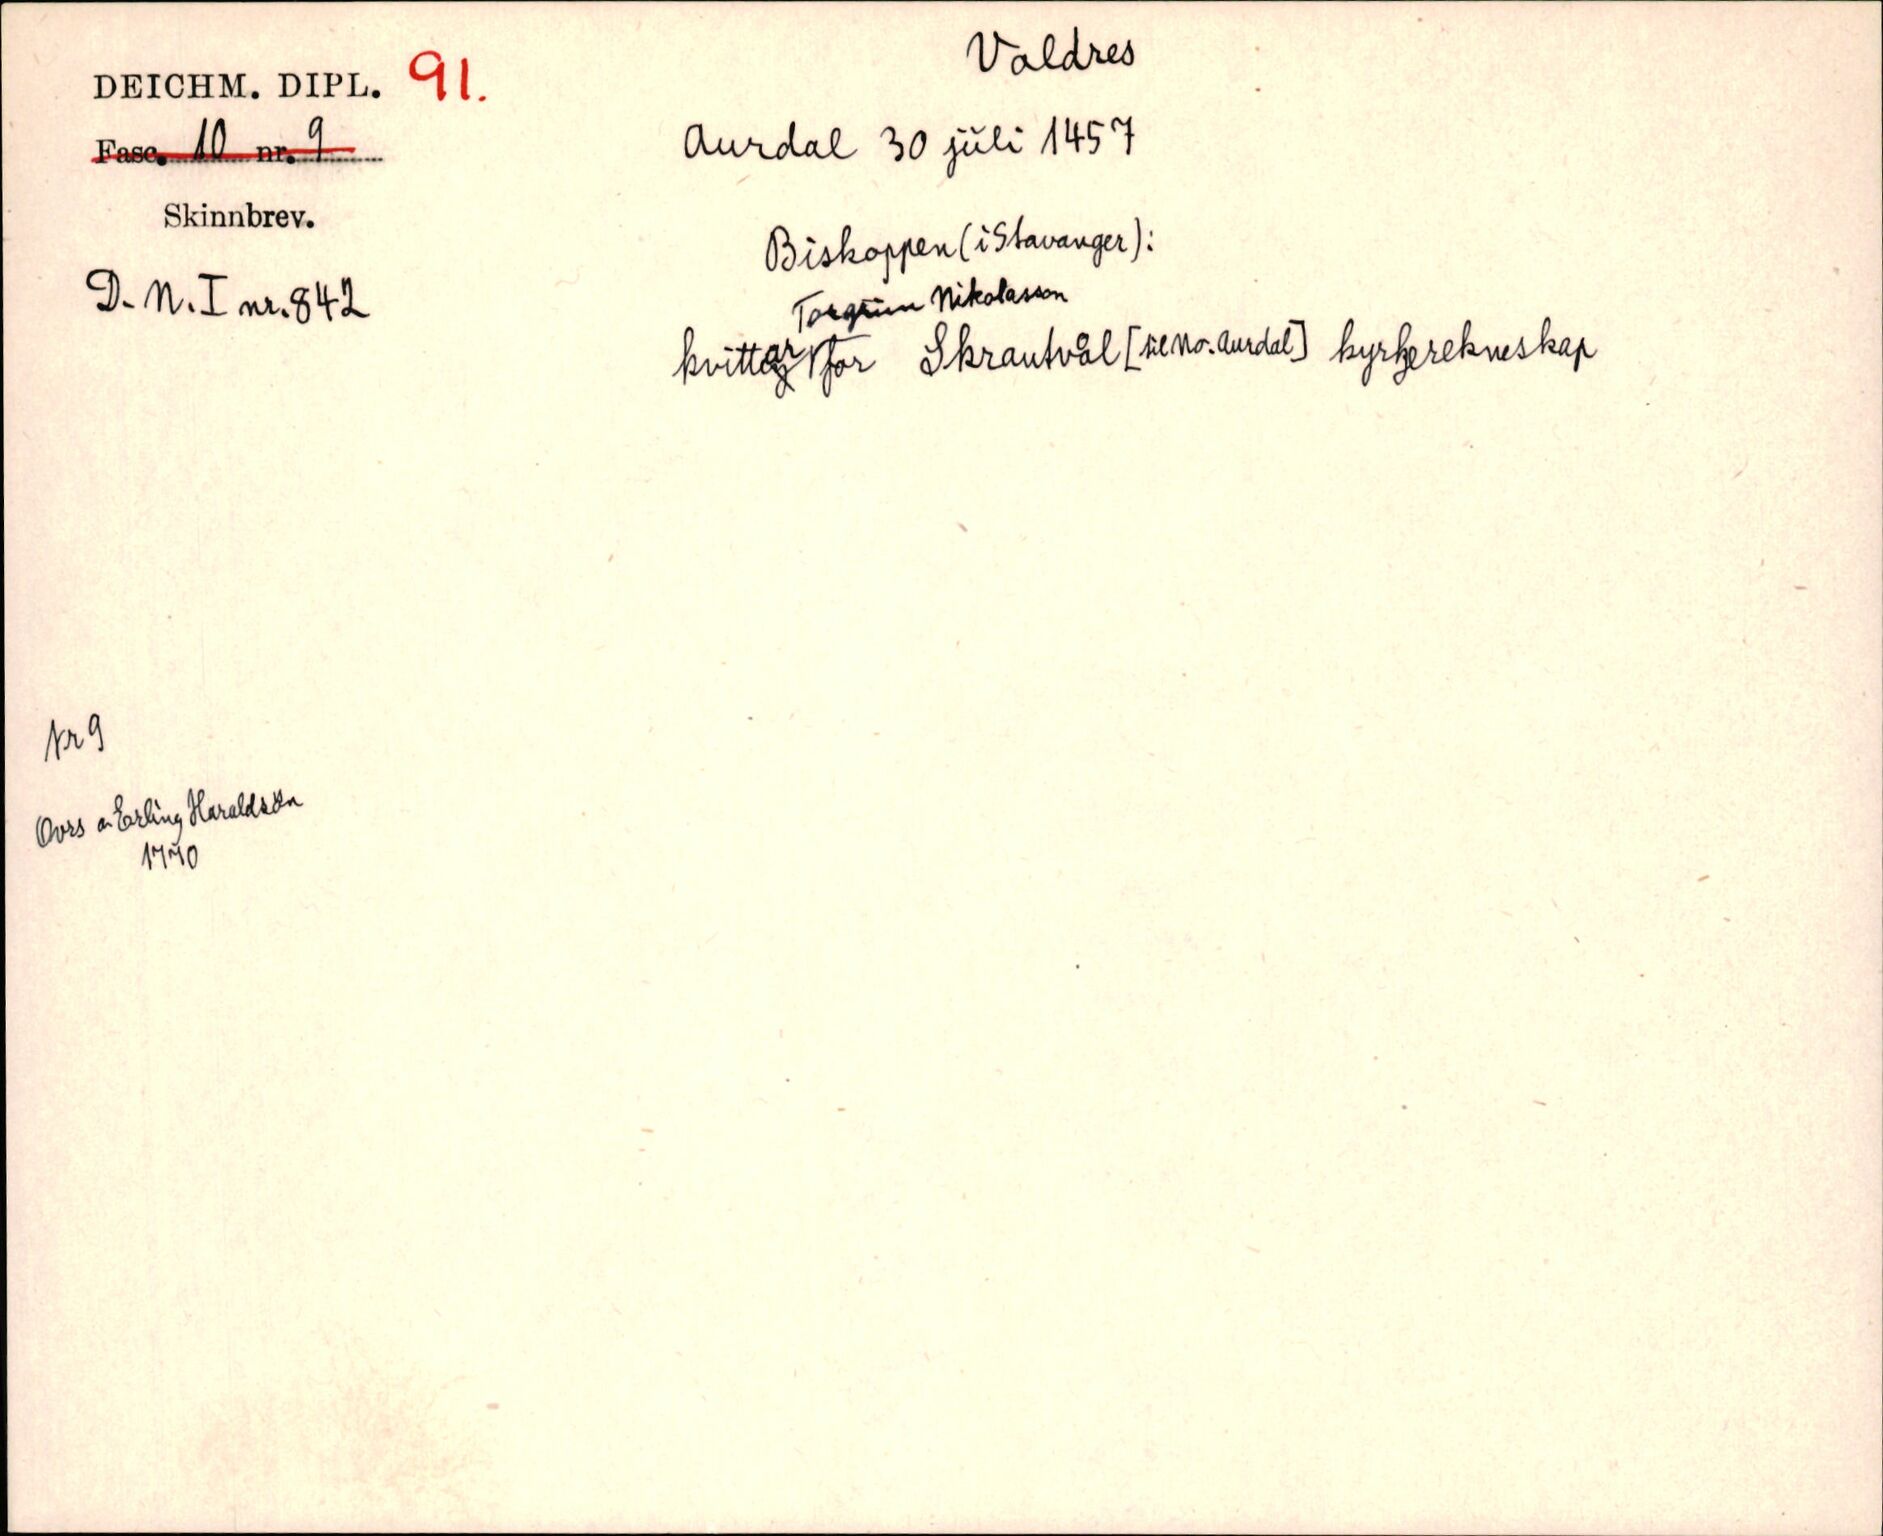 DEICHM. DIPL. 91.
Fasc. 10 nr. 9
Skinnbrev.
D. N. I nr. 842
Valdres
Aurdal 30 juli 1457
Biskoppen (i Stavanger):
Torgrim Nikolasson
kvittar for Skrautvål [til No. Aurdal] kyrkjerekneskap
Nr 9
Overs a Erling Haraldsøn
1770